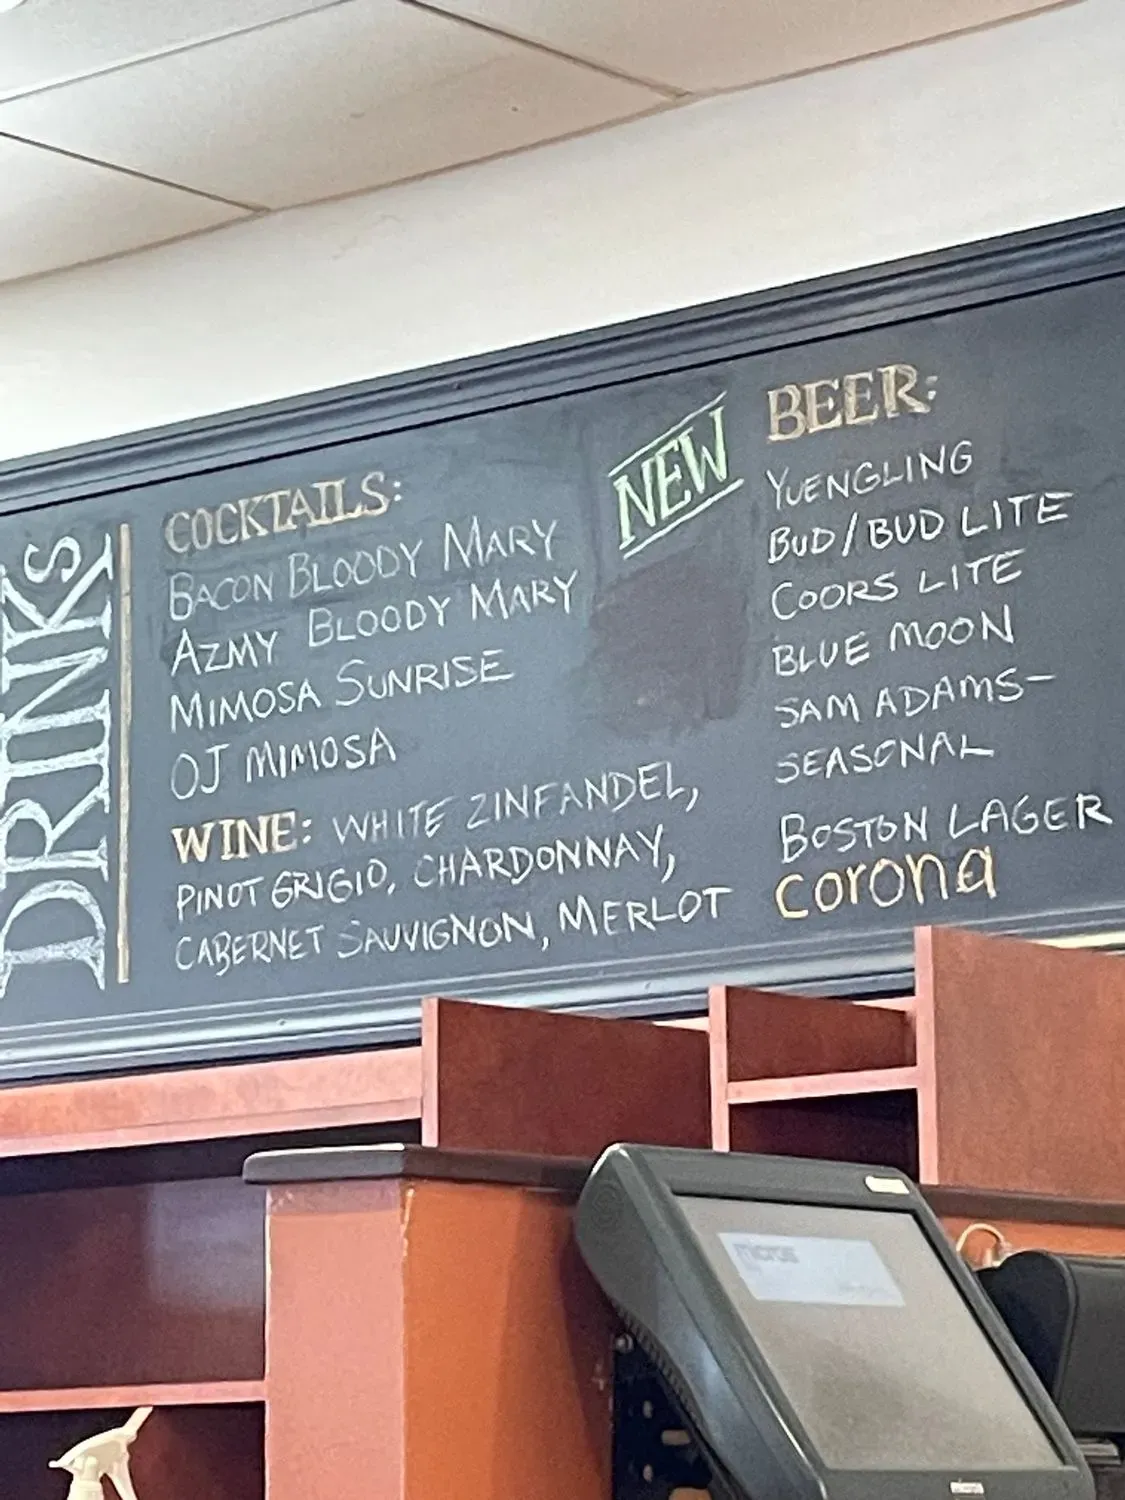 DRINKS
COCKTAILS:
BACON BLOODY MARY
AZMY BLOODY MARY
MIMOSA SUNRISE
OJ MIMOSA
WINE: WHITE ZINFANDEL,
PINOT GRIGIO, CHARDONNAY,
CABERNET SAUVIGNON, MERLOT
NEW
BEER:
YUENGLING
BUD/BUD LITE
COORS LITE
BLUE MOON
SAM ADAMS-
SEASONAL
BOSTON LAGER
corona
micros
micros